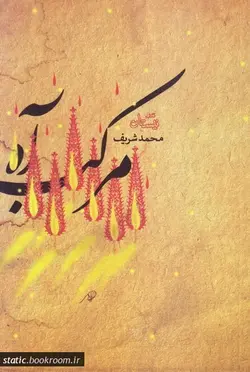 نیستان
محمد شریف
مرکب آه
static.bookroom.ir